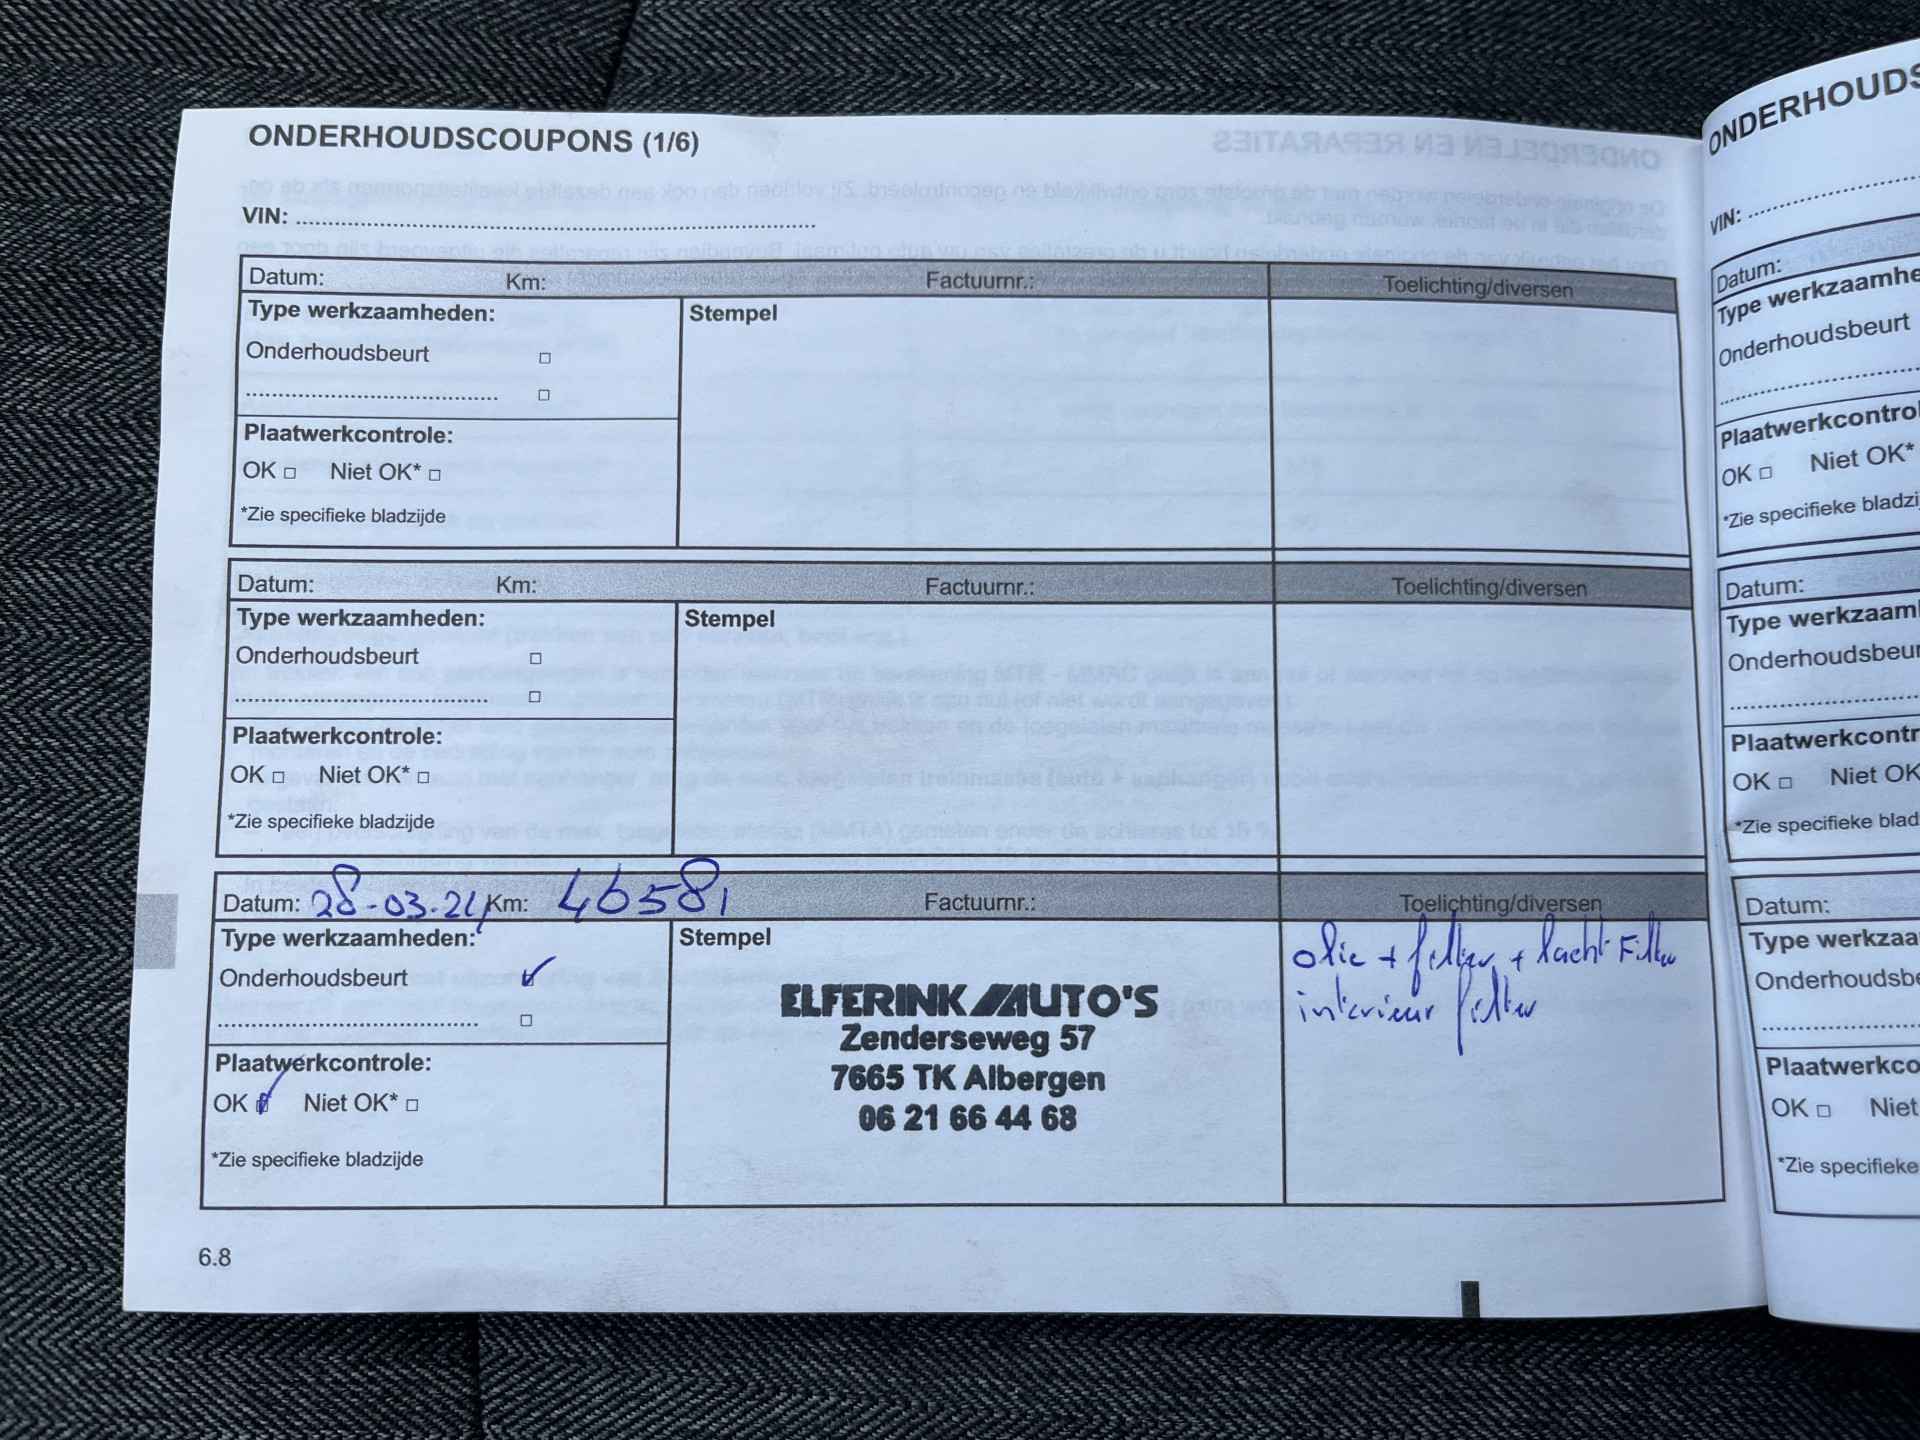 ONDERHOUDSCOUPONS (1/6)
VIN:
Datum: Km: Factuurnr.: Toelichting/diversen
Type werkzaamheden: Stempel
Onderhoudsbeurt
Plaatwerkcontrole:
OK Niet OK*
*Zie specifieke bladzijde
Datum: Km: Factuurnr.: Toelichting/diversen
Type werkzaamheden: Stempel
Onderhoudsbeurt
Plaatwerkcontrole:
OK Niet OK*
*Zie specifieke bladzijde
Datum: 28-03-24 Km: 46581 Factuurnr.: Toelichting/diversen
Type werkzaamheden: Stempel
Onderhoudsbeurt
Plaatwerkcontrole:
OK Niet OK*
*Zie specifieke bladzijde
ELFERINK AUTO'S
Zenderseweg 57
7665 TK Albergen
06 21 66 44 68
olie + filter + lucht Filter
interieur filter
6.8
ONDERHOUDS
VIN:
Datum:
Type werkzaamhe
Onderhoudsbeurt
Plaatwerkcontrol
OK Niet OK*
*Zie specifieke bladzij
Datum:
Type werkzaamh
Onderhoudsbeur
Plaatwerkcontr
OK Niet OK
*Zie specifieke blad
Datum:
Type werkzaa
Onderhoudsbe
Plaatwerkco
OK Niet
*Zie specifieke